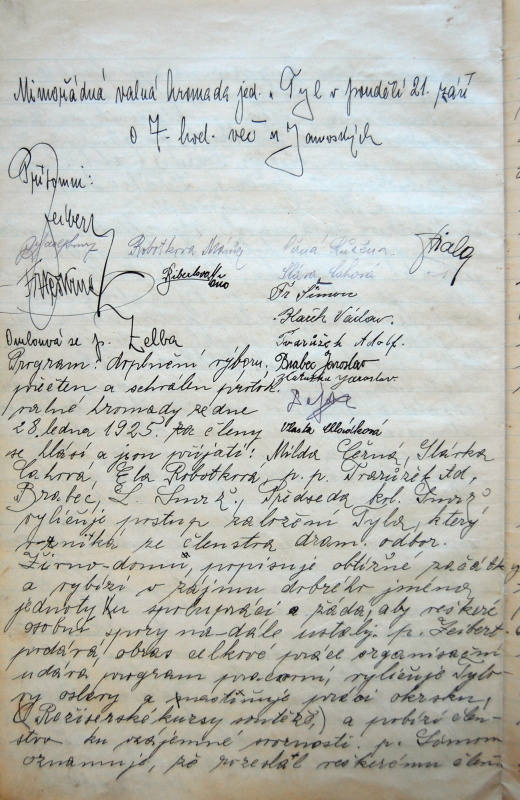 Mimořádná valná hromada jed. "Tyl" v pondělí 21. září
o 7. hod. več u Janovských
Přítomni:
Zeibert
Robotková
Fr Šimon
Hašek Václav.
Tvarůžek Adolf.
Brabec Jaroslav
Jaroslav
Vlasta
Omlouvá se p. Zelba
Program: doplnění výboru,
přečten a schválen protok.
valné hromady ze dne
28. ledna 1925. za členy
se hlásí a jsou přijati: Milda Černá, Slávka
Cahová, Ela Robotková, p. p. Tvarůžek Ad,
Brabec, L. Smrž, Předseda kol. Smrž
vyličuje postup založení Tyla, který
vzniká ze členstva dram. odbor.
popisuje obtížné začátky
a vybízí v zájmu dobrého jména
jednoty ku spolupráci a žádá, aby veškeré
osobní spory na-dále ustaly. p. Zeibert
podává obraz celkové práce organisační
udává program pracovní, vyličuje Tylo-
vy oslavy a nastiňuje práci okrsku,
(Režisérské kursy soutěž,) a pobízí člen-
stvo ku vzájemné svornosti. p. Šimon
oznamuje, že rozeslal veškerému člen